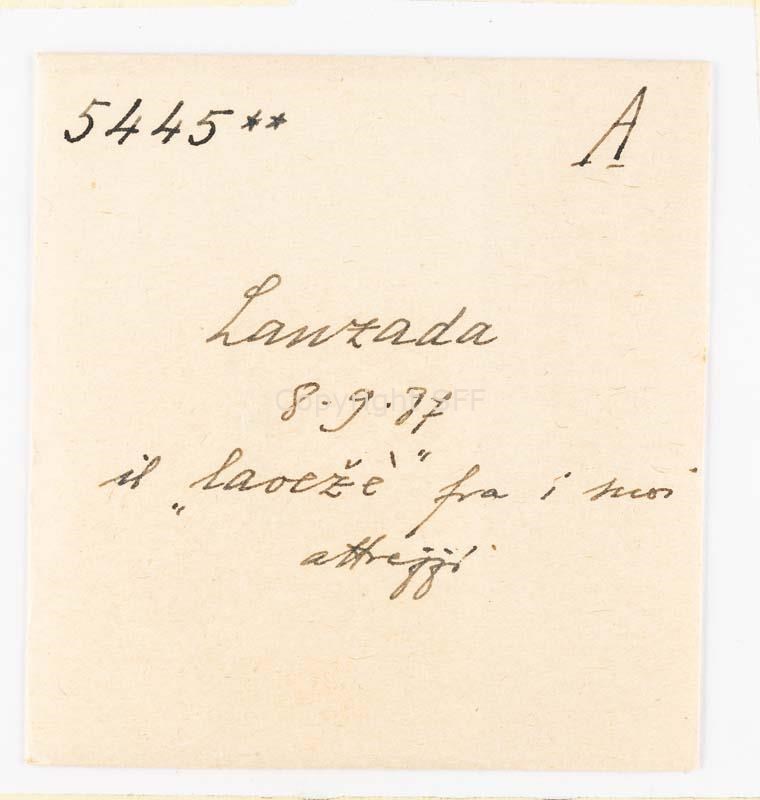 5445** A
Lanzada
8.9.37
Copyright SFF
il „lavežè" fra i suoi
attrezzi